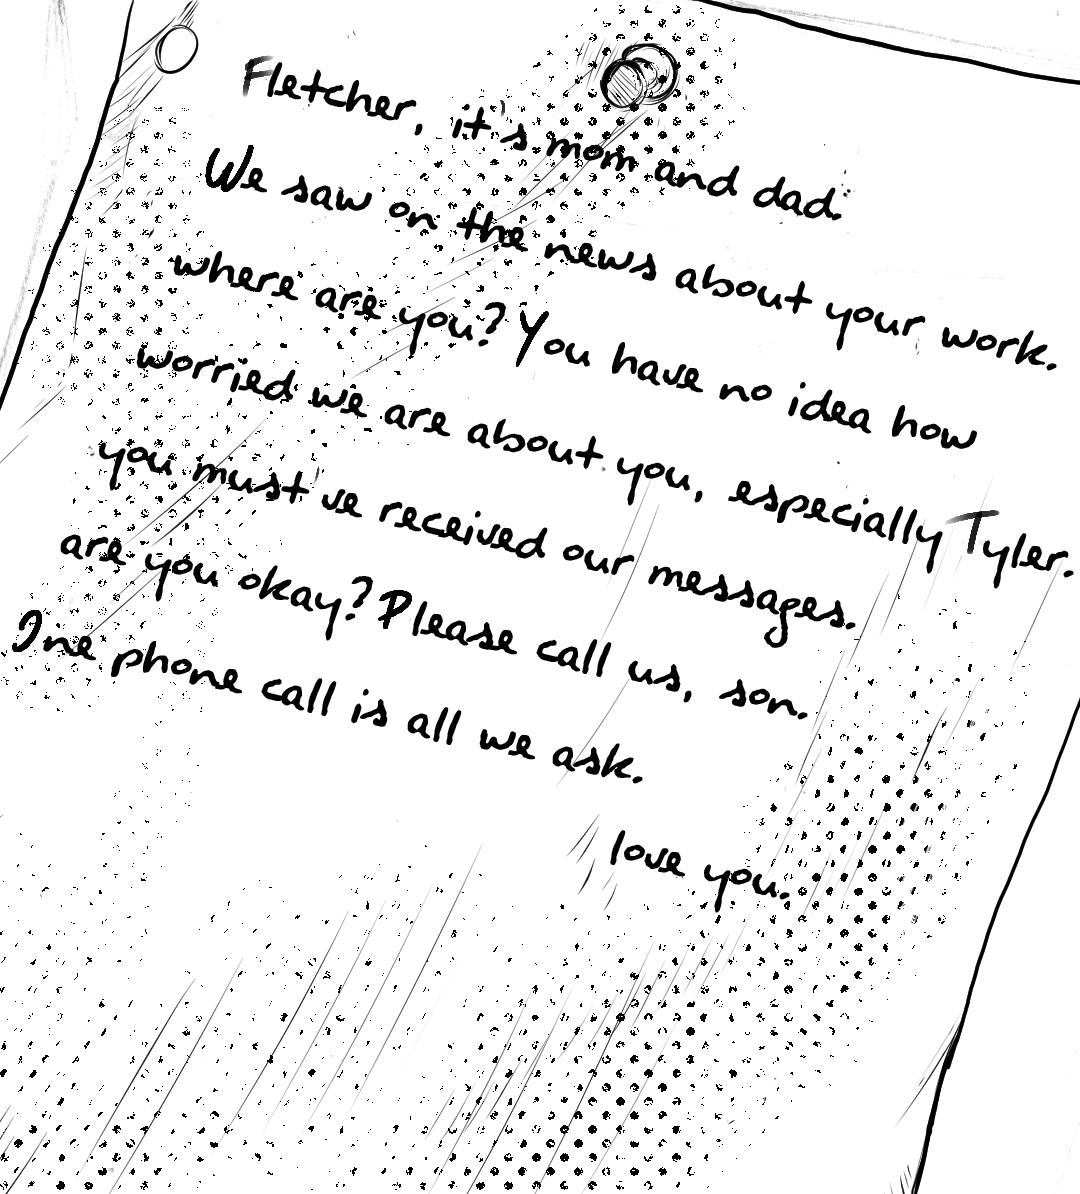 Fletcher, it's mom and dad.
We saw on the news about your work.
where are you? You have no idea how
worried we are about you, especially Tyler.
you must ve received our messages.
are you okay? Please call us, son.
One phone call is all we ask.
love you.